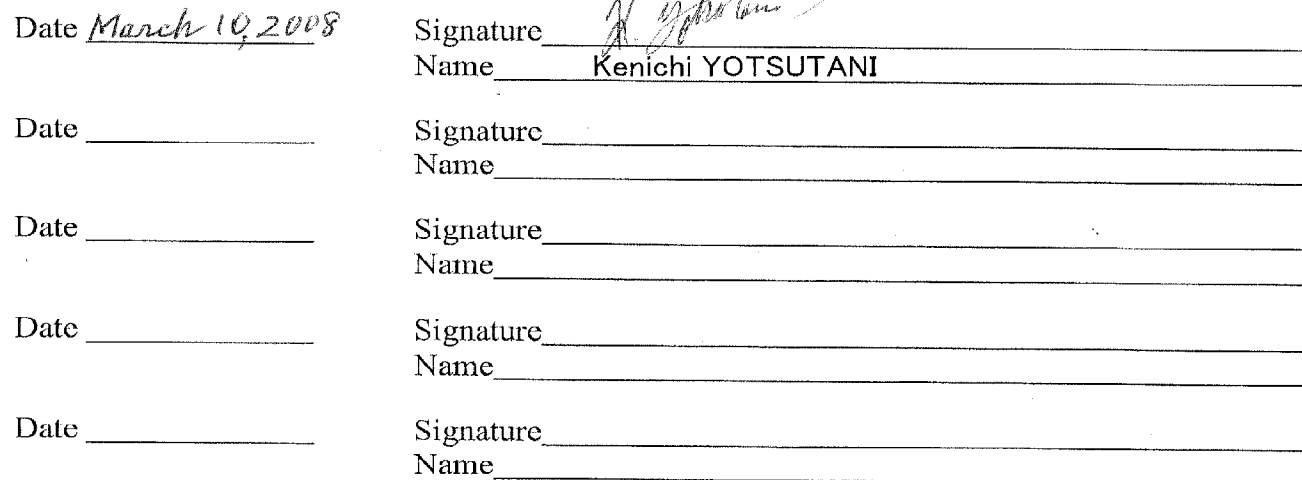 Date March 10, 2008 Signature K. Yotsutani
Name Kenichi YOTSUTANI
Date Signature
Name
Date Signature
Name
Date Signature
Name
Date Signature
Name